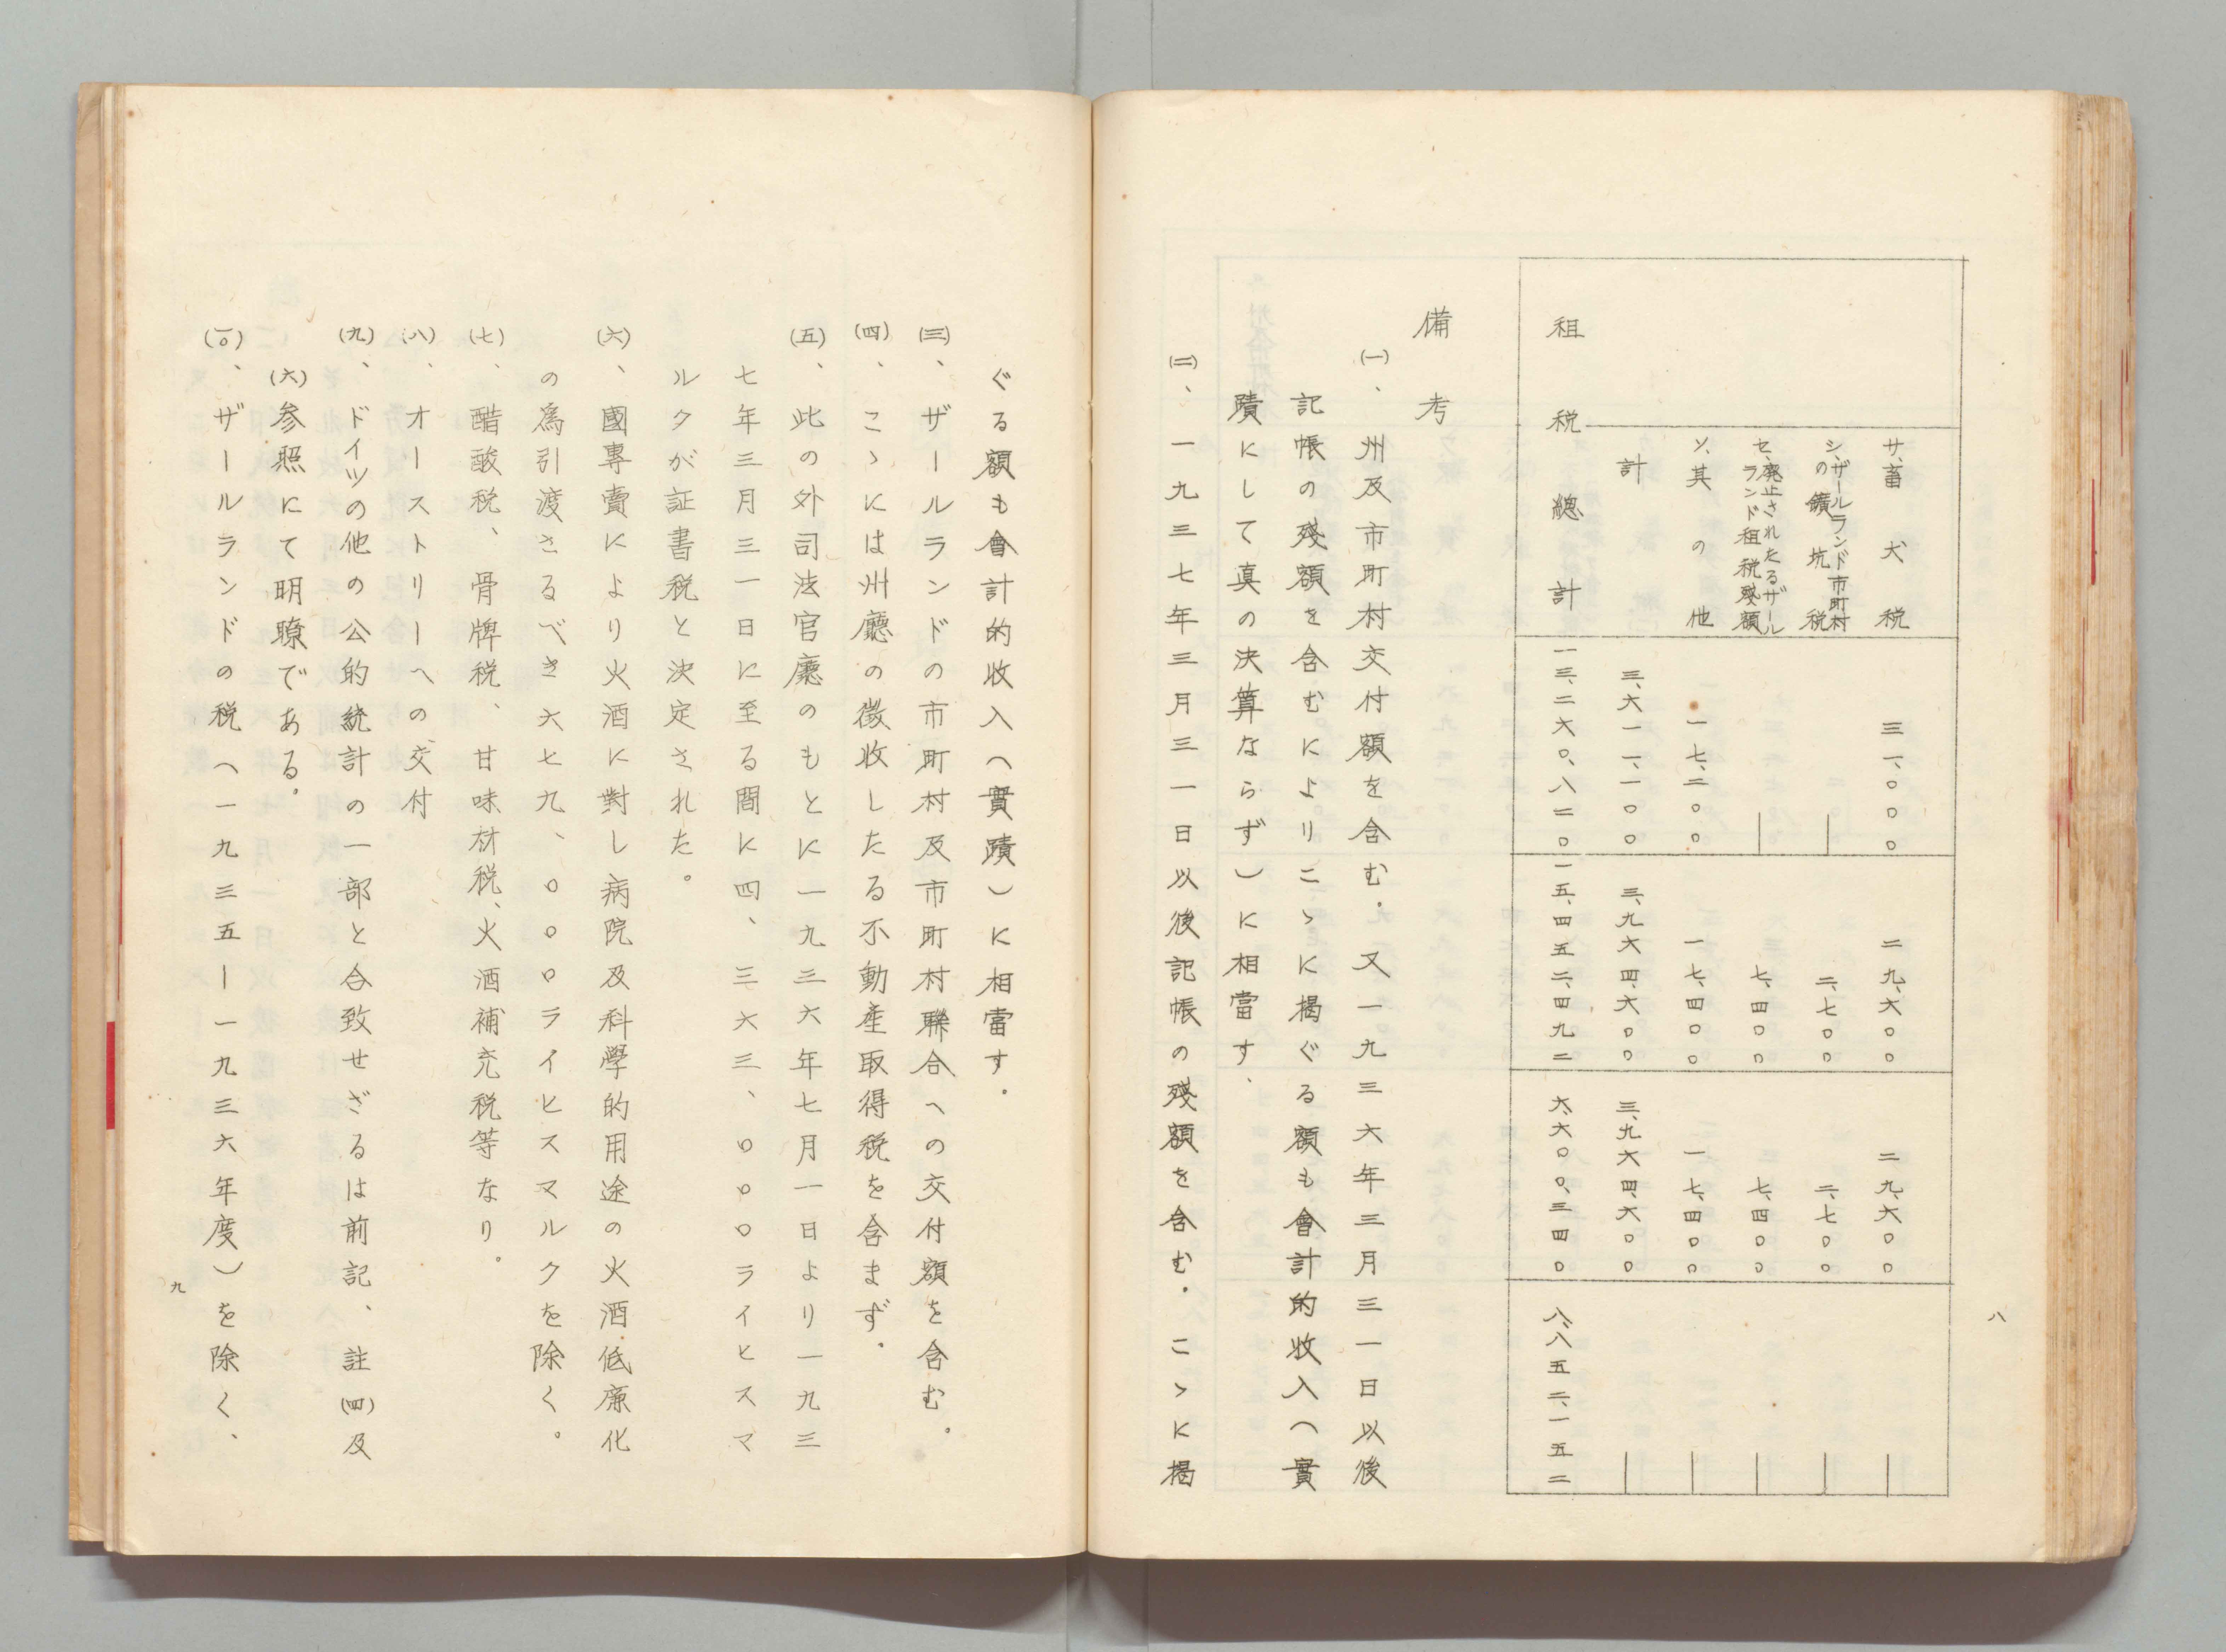 八
サ、畜犬税 三一、〇〇〇 二九、六〇〇 二九、六〇〇 ―
シ、ザールランド市町村
の鑛坑税 ― 二、七〇〇 二、七〇〇 ―
セ、廃止されたるザール
ランド租税残額 ― 七、四〇〇 七、四〇〇 ―
ソ、其の他 一七、二〇〇 一七、四〇〇 一七、四〇〇 ―
計 三、六一一、一〇〇 三、九六四、六〇〇 三、九六四、六〇〇 ―
租税總計 一三、二六〇、八二〇 一五、四五二、四九二 六、六〇〇、三四〇 八、八五二、一五二
備考
(一)、州及市町村交付額を含む。又一九三六年三月三一日以後
記帳の殘額を含むによりこゝに揭ぐる額も會計的收入(實
蹟にして真の決算ならず)に相當す、
(二)、一九三七年三月三一日以後記帳の殘額を含む。こゝに揭
ぐる額も會計的收入(實蹟)に相當す。
(三)、ザールランドの市町村及市町村聯合への交付額を含む。
(四)、こゝには州廳の徵收したる不動產取得税を含まず。
(五)、此の外司法官廳のもとに一九三六年七月一日より一九三
七年三月三一日に至る間に四、三六三、〇〇〇ライヒスマ
ルクが証書税と決定された。
(六)、國專賣により火酒に對し病院及科學的用途の火酒低廉化
の爲引渡さるべき六七九、〇〇〇ライヒスマルクを除く。
(七)、醋酸税、骨牌税、甘味材税、火酒補充税等なり。
(八)、オーストリーへの交付
(九)、ドイツの他の公的統計の一部と合致せざるは前記、註(四)及
(六)参照にて明瞭である。
(一〇)、ザールランドの税(一九三五―一九三六年度)を除く、
九